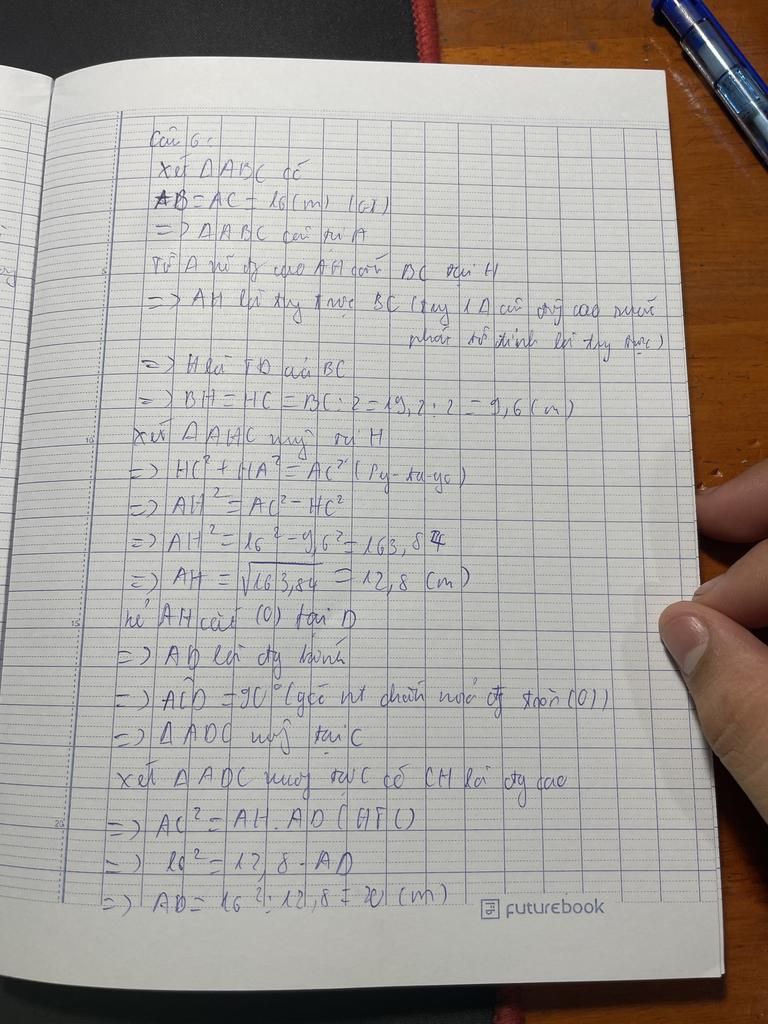 Câu 6:
Xét ΔABC có
AB = AC = 16(m) (GT)
=> ΔABC cân tại A
Từ A kẻ đg cao AH cắt BC tại H
=> AH là đg trực BC (trg 1 Δ cân đg cao xuất
phát từ đỉnh là đg trực)
=> H là TĐ của BC
=> BH = HC = BC : 2 = 19,2 : 2 = 9,6 (m)
Xét ΔAHC vuông tại H
=> HC² + HA² = AC² (Py-ta-go)
=> AH² = AC² - HC²
=> AH² = 16² - 9,6² = 163,84
=> AH = √163,84 = 12,8 (m)
kẻ AH cắt (O) tại D
=> AD là đg kính
=> ACD = 90° (góc nt chắn nửa đg tròn (O))
=> ΔADC vuông tại C
Xét ΔADC vuông tại C có CH là đg cao
=> AC² = AH . AD (HTL)
=> 16² = 12,8 . AD
=> AD = 16² : 12,8 = 20 (m)
futurebook
5
10
15
20